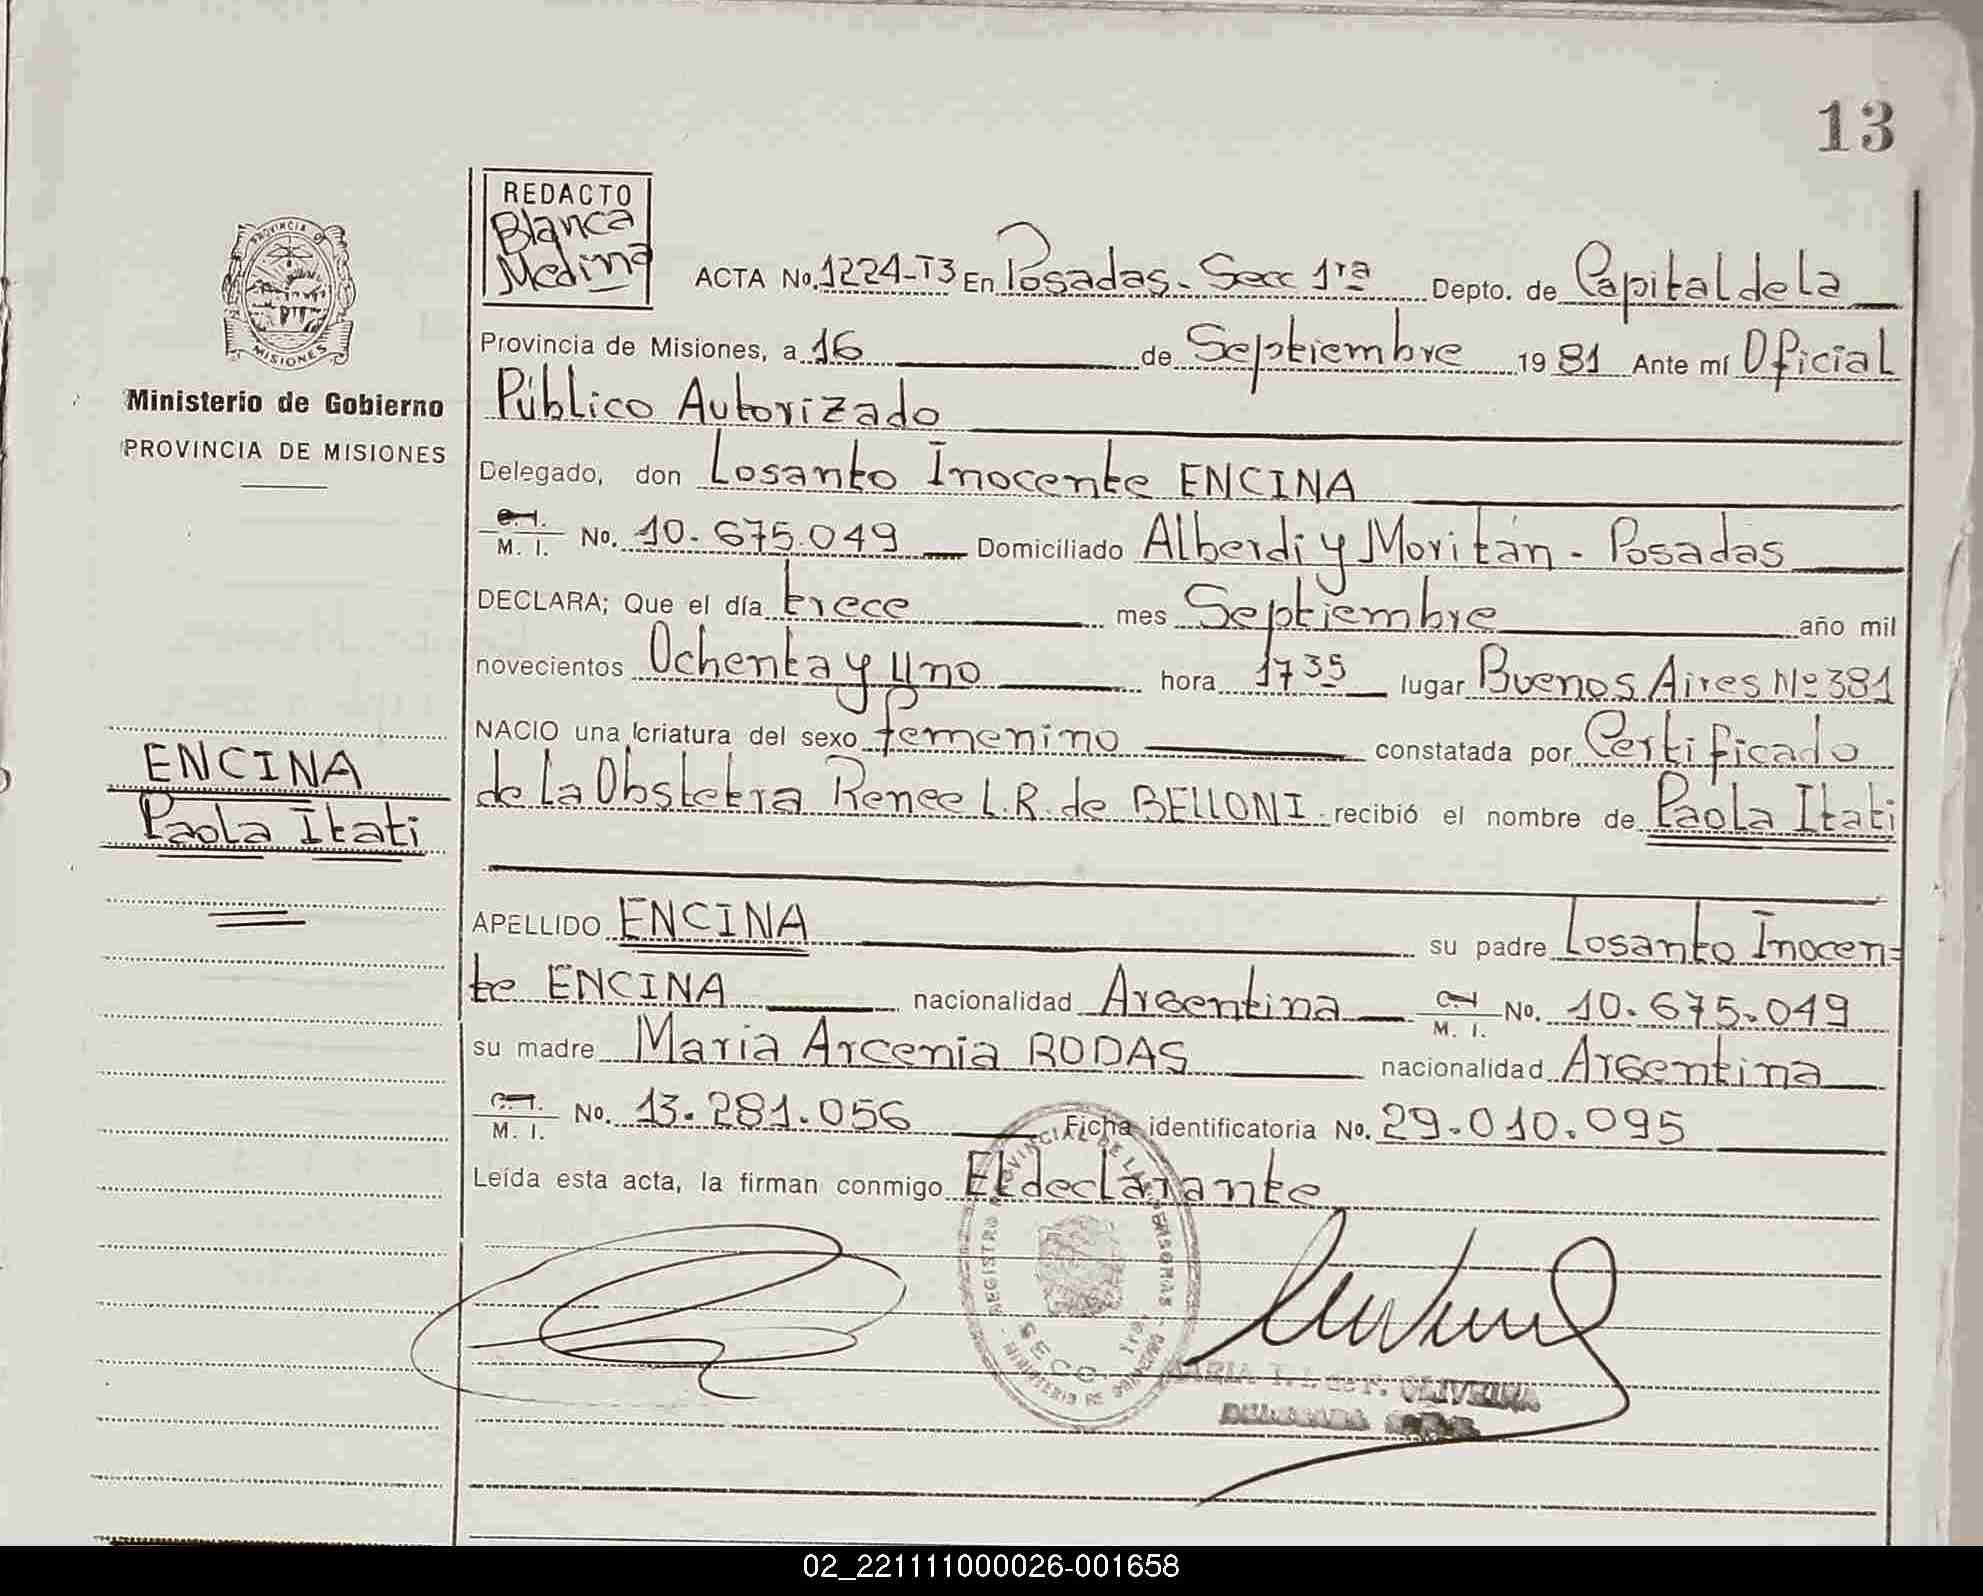 13
REDACTO
Blanca
Medina
PROVINCIA DE
MISIONES
Ministerio de Gobierno
PROVINCIA DE MISIONES
ACTA No. 1224-T3 En Posadas. Secc 1ra Depto. de Capital de la
Provincia de Misiones, a 16 de Septiembre 1981 Ante mí Oficial
Público Autorizado
Delegado, don Losanto Inocente ENCINA
C. I.
M. I. No. 10.675.049 Domiciliado Alberdi y Moritán - Posadas
DECLARA; Que el día trece mes Septiembre año mil
novecientos Ochenta y Uno hora 17 35 lugar Buenos Aires Nº 381
NACIO una criatura del sexo femenino constatada por Certificado
de la Obstetra Renee L.R. de BELLONI recibió el nombre de Paola Itati
ENCINA
Paola Itati
APELLIDO ENCINA su padre Losanto Inocen=
te ENCINA nacionalidad Argentina C. I.
M. I. No. 10.675.049
su madre Maria Arcenia RODAS nacionalidad Argentina
C. I.
M. I. No. 13.281.056 Ficha identificatoria No. 29.010.095
Leída esta acta, la firman conmigo El declarante
REGISTRO PROVINCIAL DE LAS PERSONAS
SECC. 1ra
MINISTERIO DE GOBIERNO
MARIA T. L. de F. OLIVEIRA
02_221111000026-001658